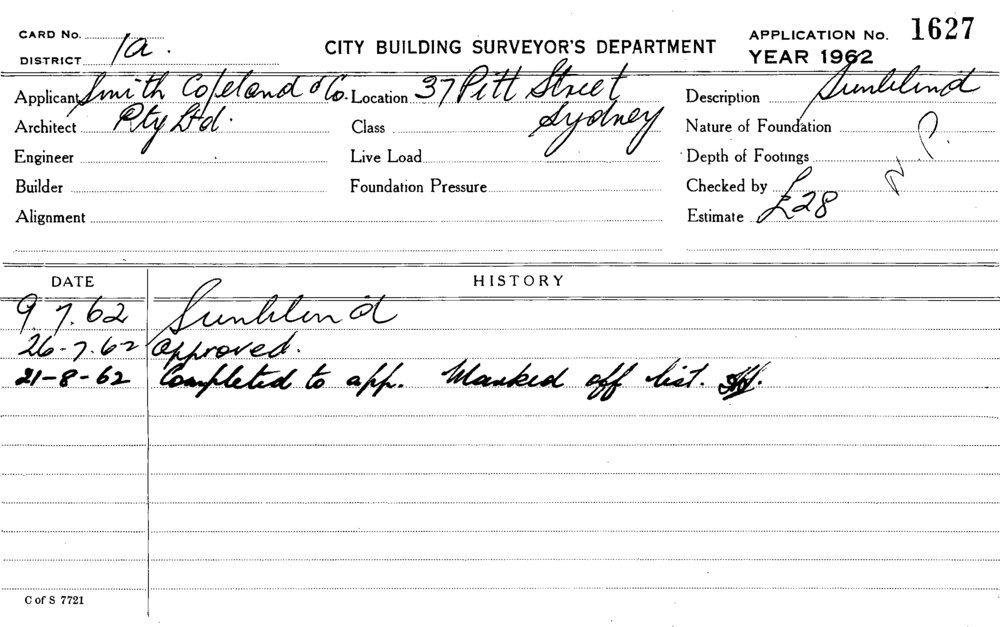 CARD No.
DISTRICT 1a.
CITY BUILDING SURVEYOR'S DEPARTMENT
APPLICATION No. 1627
YEAR 1962
Applicant Smith Copeland & Co. Location 37 Pitt Street Description Sunblind
Architect Pty Ltd. Class Sydney Nature of Foundation
Engineer Live Load Depth of Footings N.P.
Builder Foundation Pressure Checked by
Alignment Estimate £28
DATE HISTORY
9.7.62 Sunblind
26-7-62 approved.
21-8-62 Completed to app. Marked off list.
C of S 7721